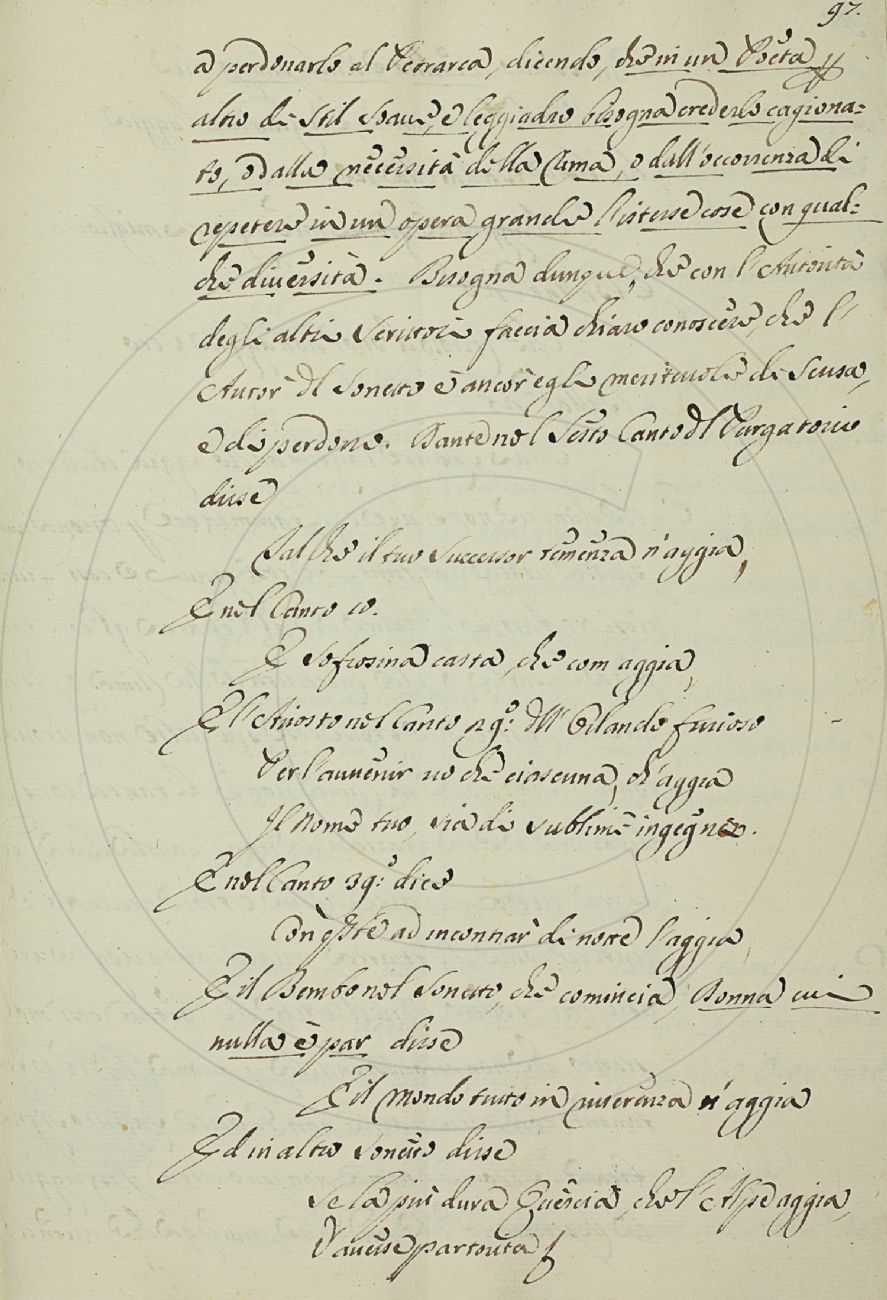 97.
a perdonarlo al Petrarca, dicendo, che in un Poeta p
altro di stil soave, e leggiadro bisogna crederlo cagiona=
to, o dalla necessità della Rima, o dall'occorrenza di
repetere in un opera grande l'istesse cose con qual=
che diversità. Bisogna dunque, che con l'Autorità
degli altri Scrittori faccia chiaro conoscere, che l'
Autor dl Sonetto è ancor egli meritevole di scusa,
e di perdono. Dante nel Sesto Canto dl Purgatorio
disse
Tal che il tuo Successor temenza n'aggia,
E nel Canto 10.
E Sofrosina casta, che com aggia,
E l'Ariosto nel Canto 29º: dll' Orlando furioso
Per l'avvenir vo che ciascuna, ch'aggia
Il Nome tuo, sia di sublime ingegno.
E nel Canto 39º: dice
Con qste ad incontrar di notte l'aggia,
E il Bembo nel Sonetto, che comincia, Donna cui
nulla è par disse
E il Mondo tutto in riverenza n'aggia
Ed in altro Sonetto disse
Se la più dura Quercia, che l'Alpe aggia,
V'avesse partorita